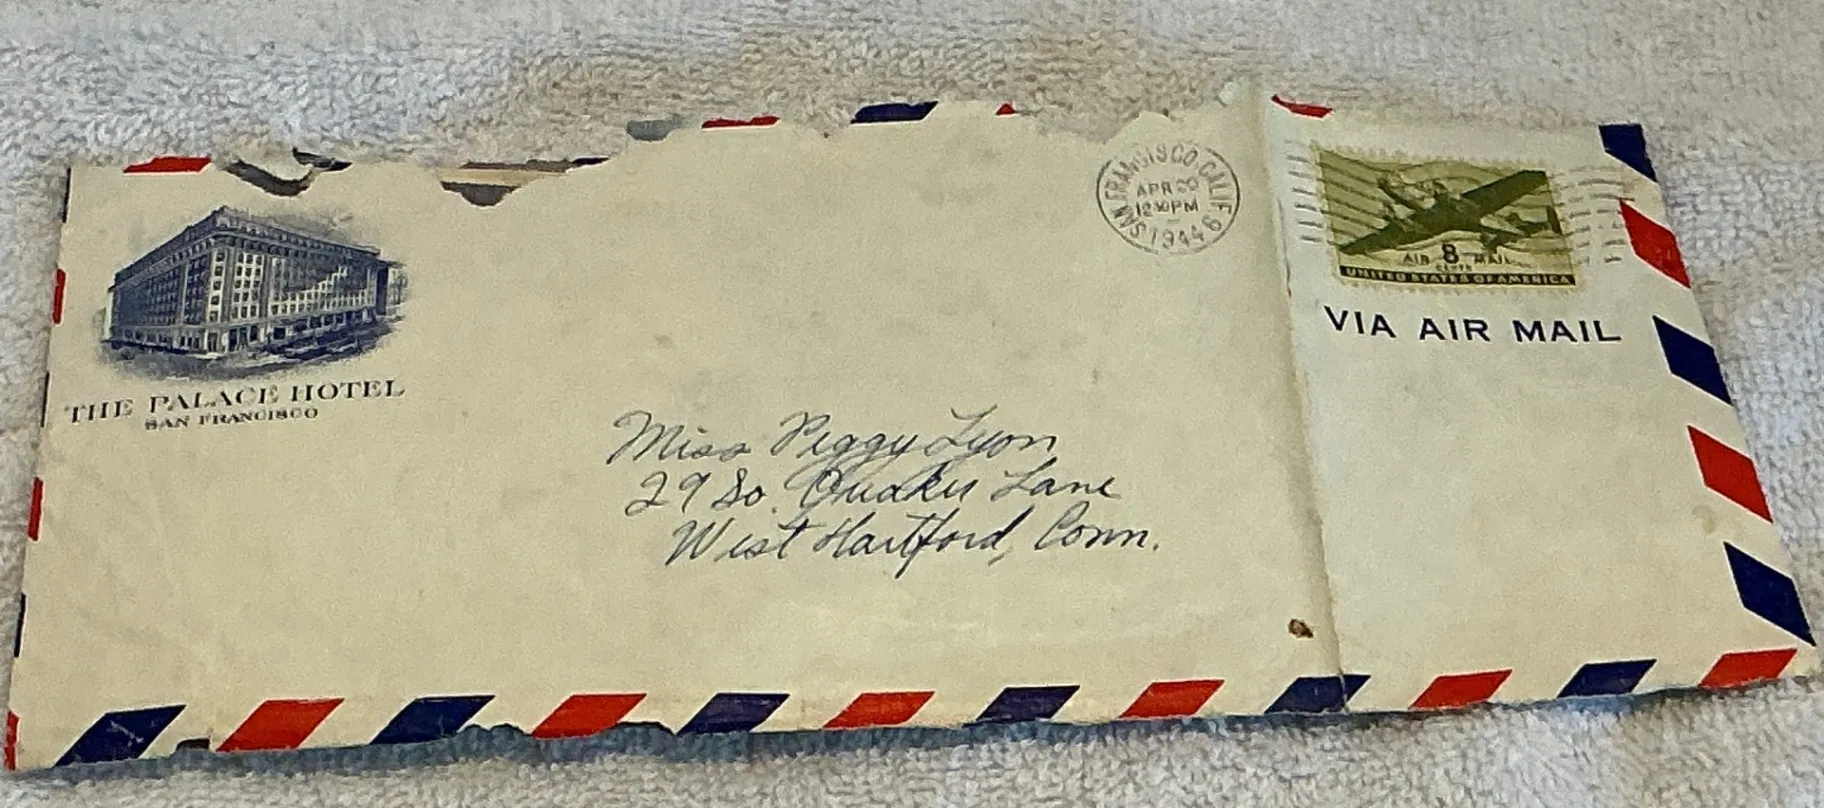 THE PALACE HOTEL
SAN FRANCISCO
SAN FRANCISCO, CALIF. 6
APR 20
12 PM
1944
AIR 8 MAIL
CENTS
UNITED STATES OF AMERICA
VIA AIR MAIL
Miss Peggy Lyon
29 So. Quaker Lane
West Hartford, Conn.